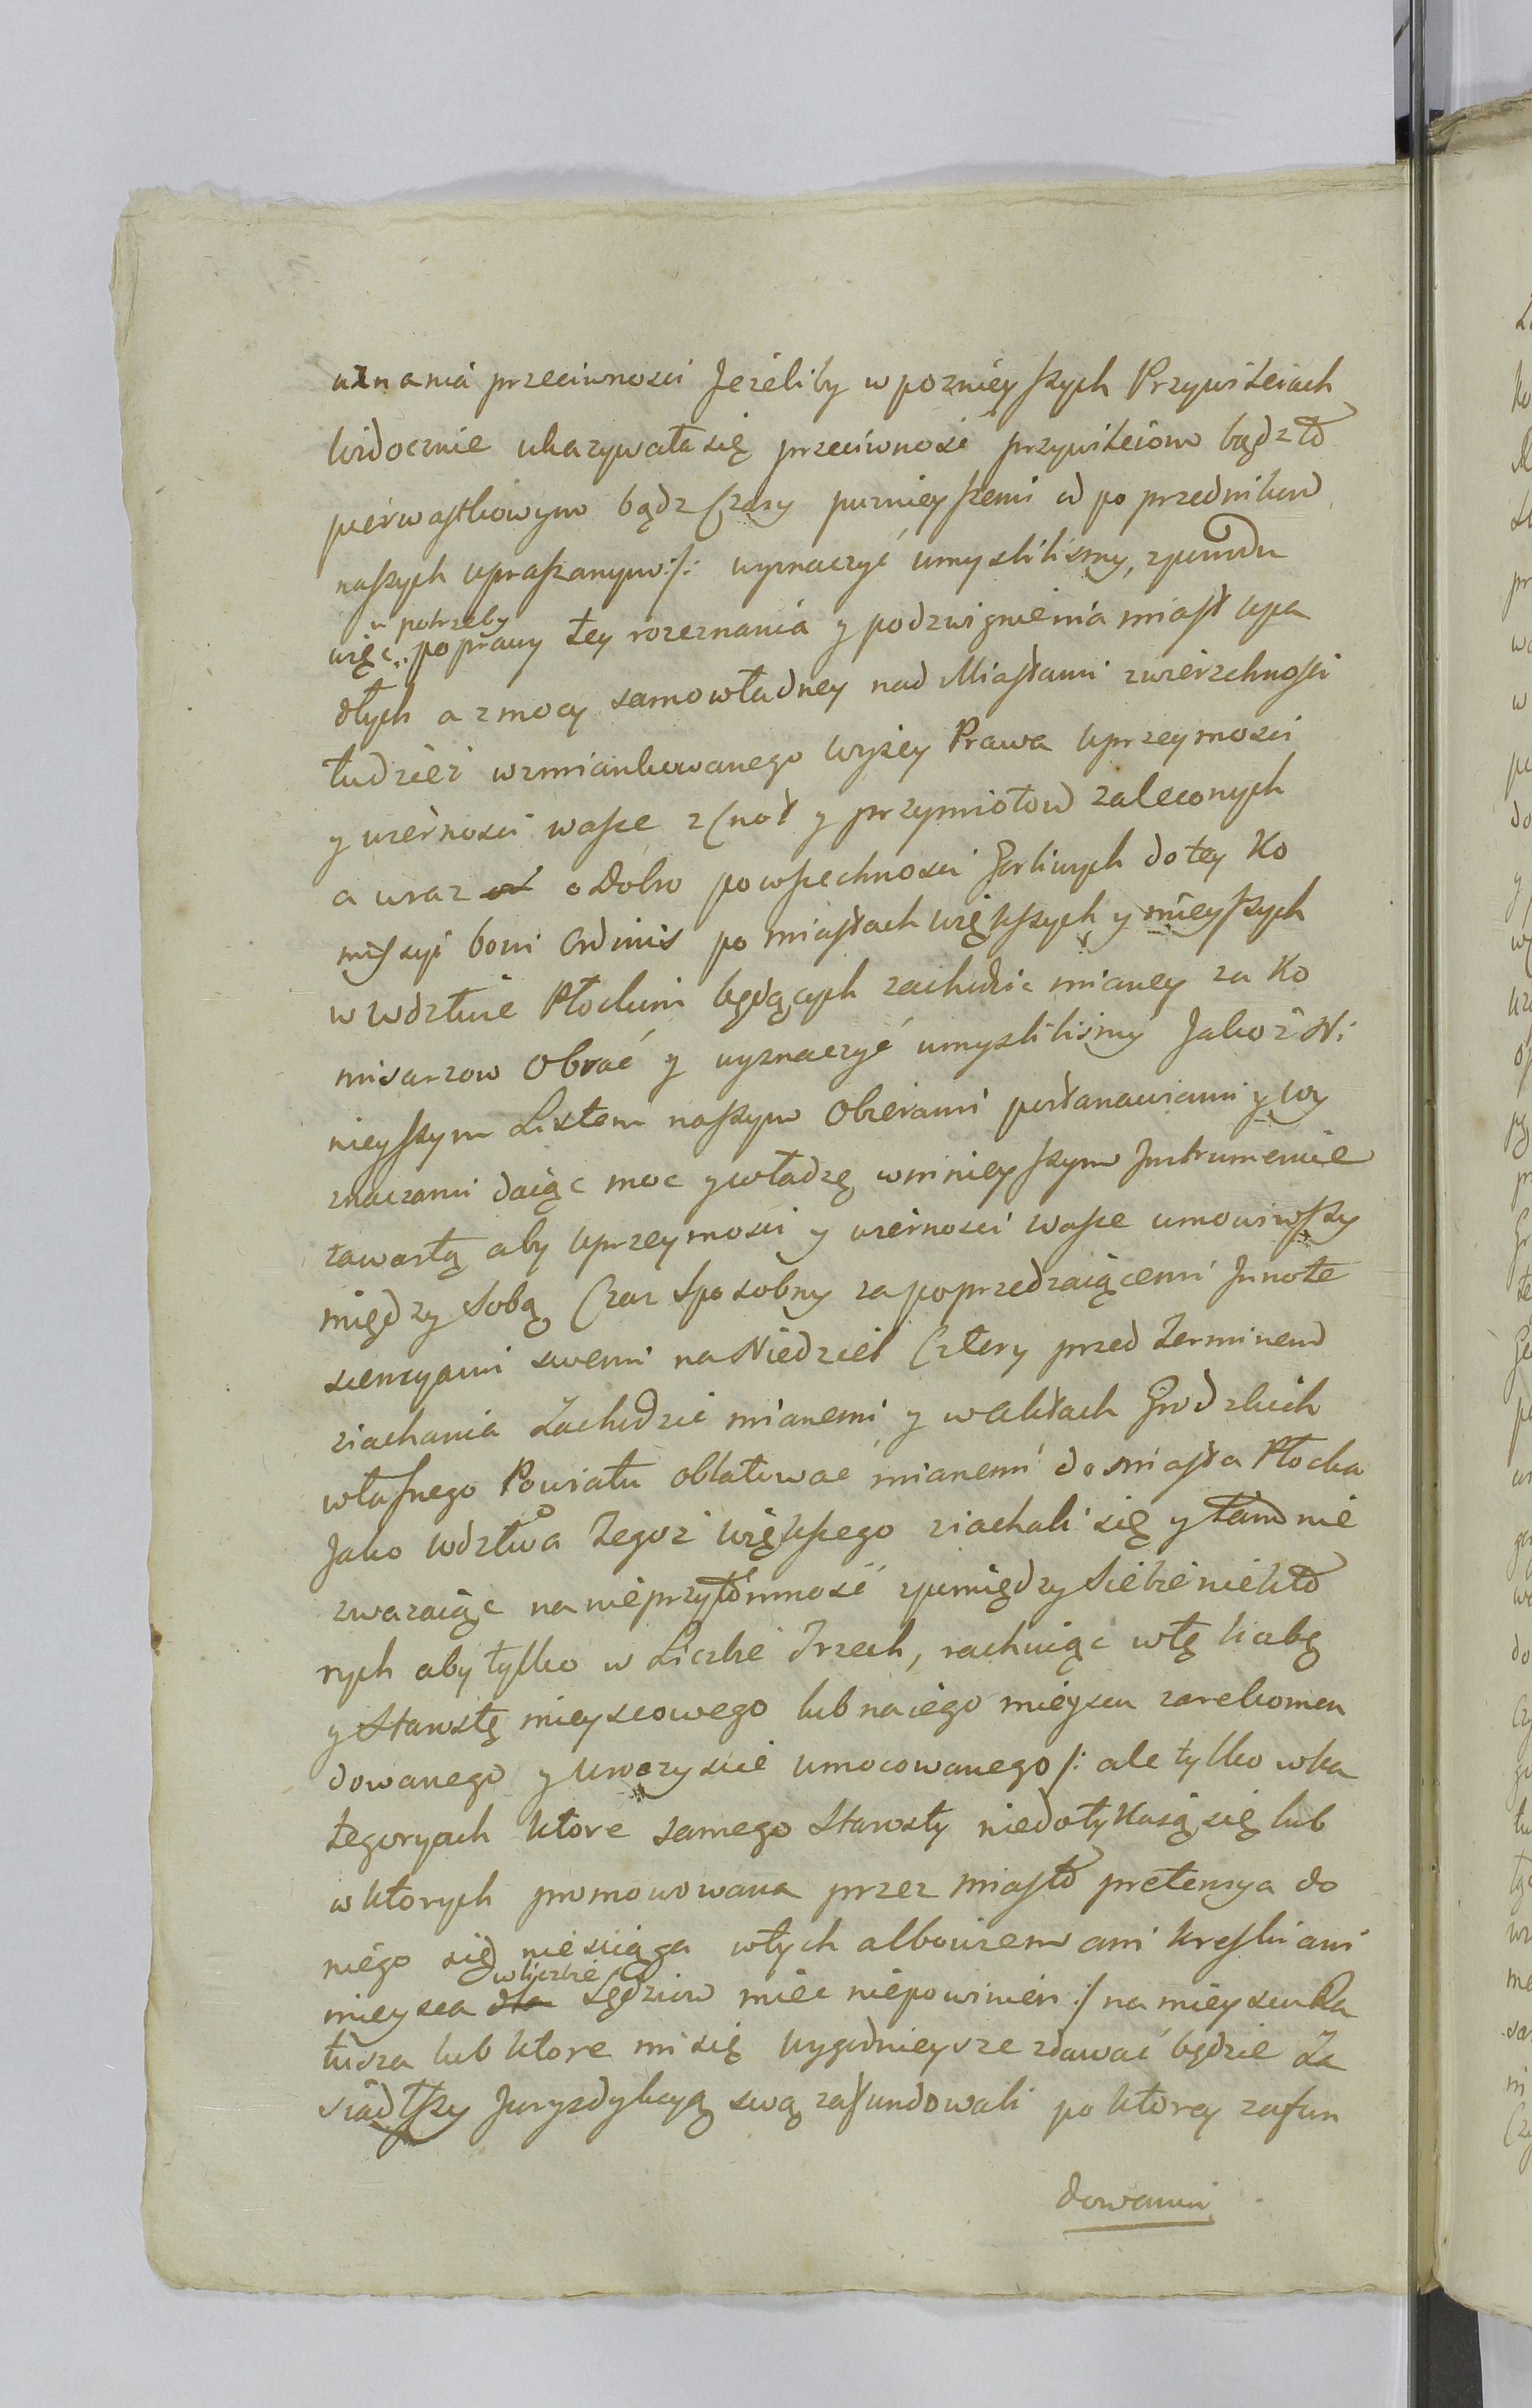 uznania przeciwnosci Jezeliby w pozniey szych Przywileiach
widocznie ukazywała się przeciwnosć przywileiom bądz to
pierwastkowym bądz Czasy puzniey szemi od po przednikow
naszych upraszanym :/: wyznaczyć umyslilismy, z powodu
u potrzeby
więc .. poprawy tey rozeznania y podzwignienia miast upa
dłych a z mocy samowładney nad Miastami zwierzchnosci
tudzież wzmiankowanego wyżey Prawa Uprzeymosci
y wiernosci wasze z Cnot y przymiotow zaleconych
a wraz o dobro powszechnosci Gorliwych do tey Ko
missyi boni Ordinis po miastach większych y mieyszych
w Wdztwie Płockim będących zachodzic mianey za Ko
misarzow Obrać y wyznaczyć umyslilismy Jakoż Ni
nieyszym Listem naszym Obierami postanawiami y wy
znaczami daiąc moc y władzę w niniey szym Instrumencie
zawartą aby Uprzeymosci y wiernosci wasze umowiwszy
między Sobą Czas Sposobny za poprzedzaiącemi Innote
scencyami swemi na Niedziel Cztery przed Terminem
ziachania Zachodzić mianemi y w aktach Grodzkich
własnego Powiatu oblatować mianemi do miasta Płocka
Jako Wdztwa Tegoż większego ziachali się y tam nie
zwazaiąc na nieprzytomność z pomiędzy Siebie niekto
rych aby tylko w Liczbie Trzech, rachuiąc w tę liczbę
y Starostę mieyscowego lub na iego mieyscu zarekomen
dowanego y Uroczyscie umocowanego /: ale tylko w ka
tegoryach ktore samego Starosty niedotykaią się lub
w ktorych promowowana przez miasto pretensya do
niego się nie sciąga w tych albowiem ani kreski ani
w liczbie
mieysca dla Sędziow miec niepowinien :/ na mieyscu Ra
tusza lub ktore mi się wygodnieysze zdawać będzie Za
siadłszy Juryzdykcyą swą zafundowali po ktorey zafun
dowaniu